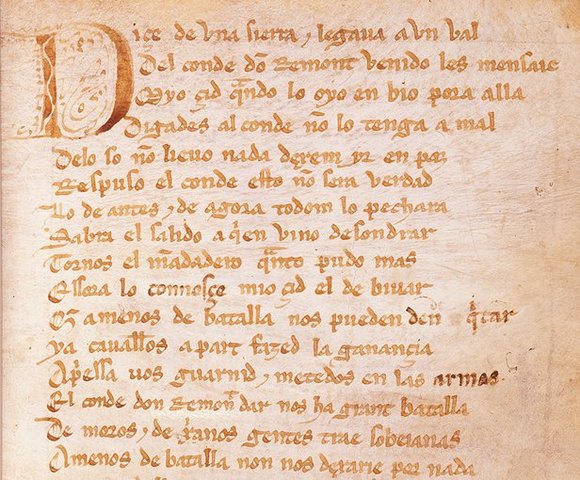 Diçe de vna sierra ⁊ legaua a vn val
Del conde dõ Remont venido les mensaie
Myo çid q̃ndo lo oyo en bio pora alla
Digades al conde nõ lo tenga a mal
Delo so nõ lieuo nada dexem yr en paz
Respuso el conde esto nõ sera verdad
Lo de antes ⁊ de agora todom lo pechara
Sabra el salido a q̃en vino desondrar
Tornos el mãdadero q̃nto pudo mas
Essora lo connosçe mio çid el de biuar
Q̃ a menos de batalla nos pueden den q̃tar
ya caualłos a part fazed la ganançia
Ap̃essa uos guarnid ⁊ metedos en las armas
El conde don Remõ dar nos ha grant batalla
De moros ⁊ de xp̃anos gentes trae sobeianas
Amenos de batalla non nos dexarie por nada